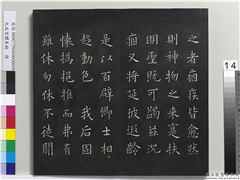 之者痼疾皆愈然
則神物之來寔扶
明聖既可蠲茲沉
痼又將延彼遐齡
是以百辟卿士相
趨動色 我后固
懷撝挹推而弗有
雖休勿休不徒聞
14